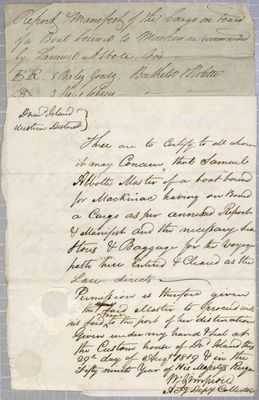 Report & Manifest of the Cargo on board
of a Boat bound to Mackinac commanded
by Samuel Abbott Viz
5 Bales Goods
Drumd Island
Western District
These are to Certify to all whom
it may Concern that Samuel
Abbott Master of a boat bound
for Mackinac having on Board
a Cargo as per annexed Report
& Manifest and the necessary Sea
Stores & Baggage for the Voyage
hath here Entered & Cleard as the
Law directs
Permission is therefore given
the said Master to proceed with
his said to the port of her destination
Given under my hand & Seal at
the Custom house of Dr Island this
29th day of Augt 1819 & in the
Fifty ninth Year of His Majestys Reign
W Simpson
Depy Collector